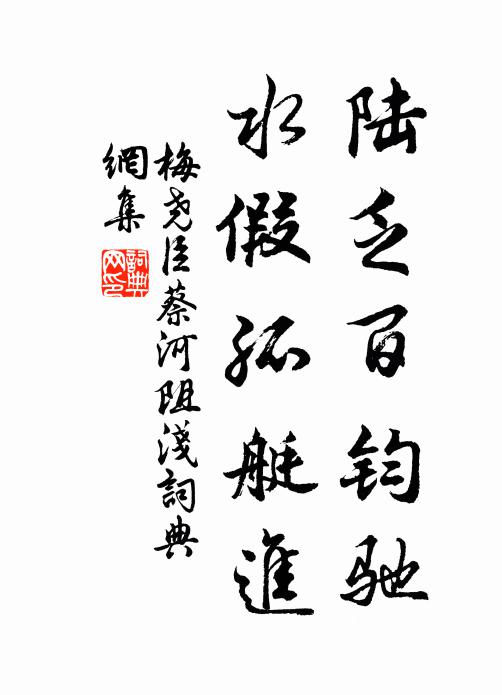 陆乏百钧驰
水假孤艇進
梅尧臣蔡河阻淺詞典
網集
詞典网印